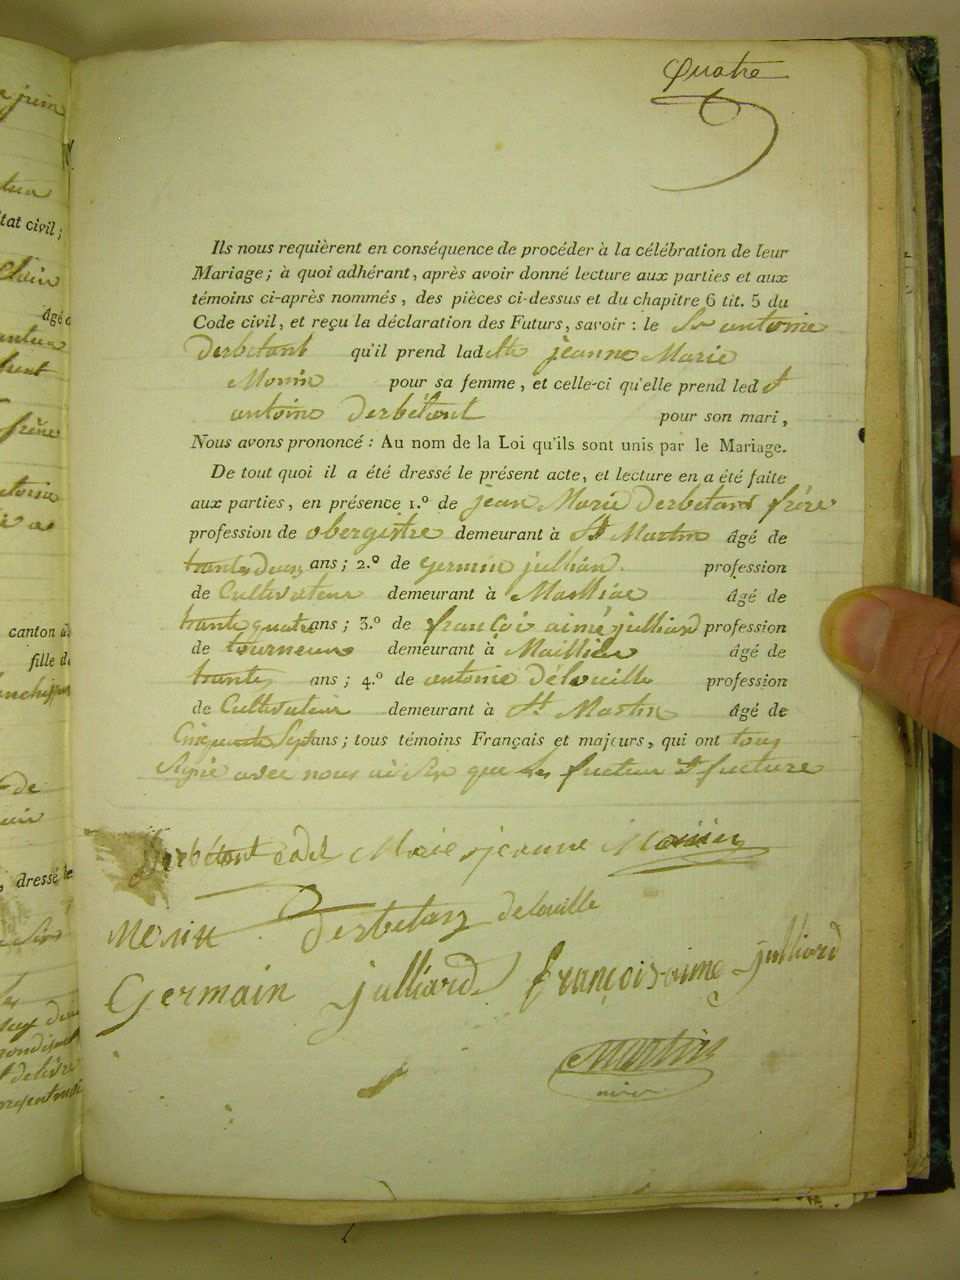 Quatre
Ils nous requièrent en conséquence de procéder à la célébration de leur
Mariage; à quoi adhérant, après avoir donné lecture aux parties et aux
témoins ci-après nommés, des pièces ci-dessus et du chapitre 6 tit. 5 du
Code civil, et reçu la déclaration des Futurs, savoir : le Sr antoine
Derbetant qu'il prend ladite jeanne Marie
Monin pour sa femme, et celle-ci qu'elle prend led t
antoine Derbétant pour son mari,
Nous avons prononcé : Au nom de la Loi qu'ils sont unis par le Mariage.
De tout quoi il a été dressé le présent acte, et lecture en a été faite
aux parties, en présence 1.º de jean Marie Derbetant frère
profession de obergistre demeurant à St Martin âgé de
trante Deux ans; 2.º de germin jullian profession
de Cultivateur demeurant à Mailliac âgé de
trante quatre ans; 3.º de françois aimé julliard profession
de tourneur demeurant à Maillia âgé de
trante ans; 4.º de antoine délouille profession
de Cultivateur demeurant à St Martin âgé de
Cinquante Sept ans; tous témoins Français et majeurs, qui ont tous
Signé avec nous que les futeur et future
Derbétant cadet Marie jeanne Monin
Monin Derbetan delouille
Germain julliard françois aimé julliard
Martin